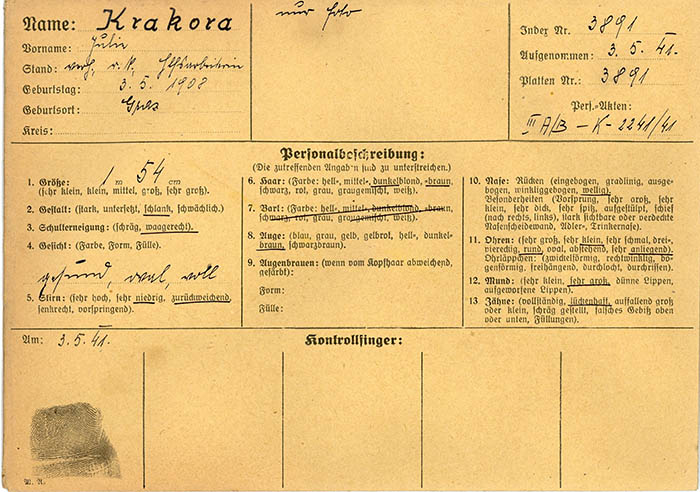 Name: Krakora
Vorname: Julie
Stand: verh. r. k. Hilfsarbeiterin
Geburtstag: 3. 5. 1908
Geburtsort: Graz
Kreis:
nur Foto
Index Nr. 3891
Aufgenommen: 3. 5. 41.
Platten Nr.: 3891
Pers.-Akten:
III A/B - K - 2241/41
Personalbeschreibung:
(Die zutreffenden Angaben sind zu unterstreichen.)
1. Größe: 1 m 54 cm
(sehr klein, klein, mittel, groß, sehr groß).
2. Gestalt: (stark, untersetzt, schlank, schwächlich).
3. Schulterneigung: (schräg, waagerecht).
4. Gesicht: (Farbe, Form, Fülle).
gesund, oval, voll
5. Stirn: (sehr hoch, sehr niedrig, zurückweichend,
senkrecht, vorspringend).
6. Haar: (Farbe: hell-, mittel-, dunkelblond, -braun,
schwarz, rot, grau, graugemischt, weiß).
7. Bart: (Farbe: hell-, mittel-, dunkelblond, -braun
schwarz, rot, grau, graugemischt, weiß).
8. Auge: (blau, grau, gelb, gelbrot, hell-, dunkel-
braun, schwarzbraun).
9. Augenbrauen: (wenn vom Kopfhaar abweichend,
gefärbt):
Form:
Fülle:
10. Nase: Rücken (eingebogen, gradlinig, ausge-
bogen, winkliggebogen, wellig).
Besonderheiten (Vorsprung, sehr groß, sehr
klein, sehr dick, sehr spitz, aufgestülpt, schief
(nach rechts, links), stark sichtbare oder verdeckte
Nasenscheidewand, Adler-, Trinkernase).
11. Ohren: (sehr groß, sehr klein, sehr schmal, drei-,
viereckig, rund, oval, abstehend, sehr anliegend).
Ohrläppchen: (zwickelförmig, rechtwinklig, bo-
genförmig, freihängend, durchlocht, durchrissen).
12. Mund: (sehr klein, sehr groß, dünne Lippen,
aufgeworfene Lippen).
13. Zähne: (vollständig, lückenhaft, auffallend groß
oder klein, schräg gestellt, falsches Gebiß oben
oder unten, Füllungen).
Am: 3. 5. 41.
Kontrollfinger: